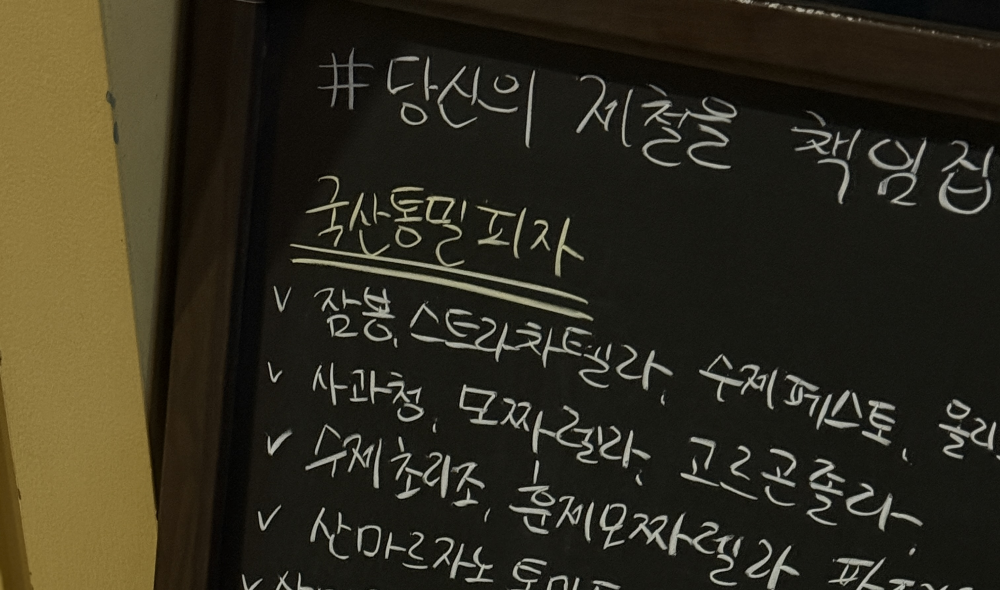 #당신의 제철을 책임집
국산통밀피자
v 잠봉, 스트라차텔라, 수제페스토, 올리
v 사과청, 모짜렐라, 고르곤졸라,
v 수제초리조, 훈제모짜렐라
v 산마르자노 토마토
v